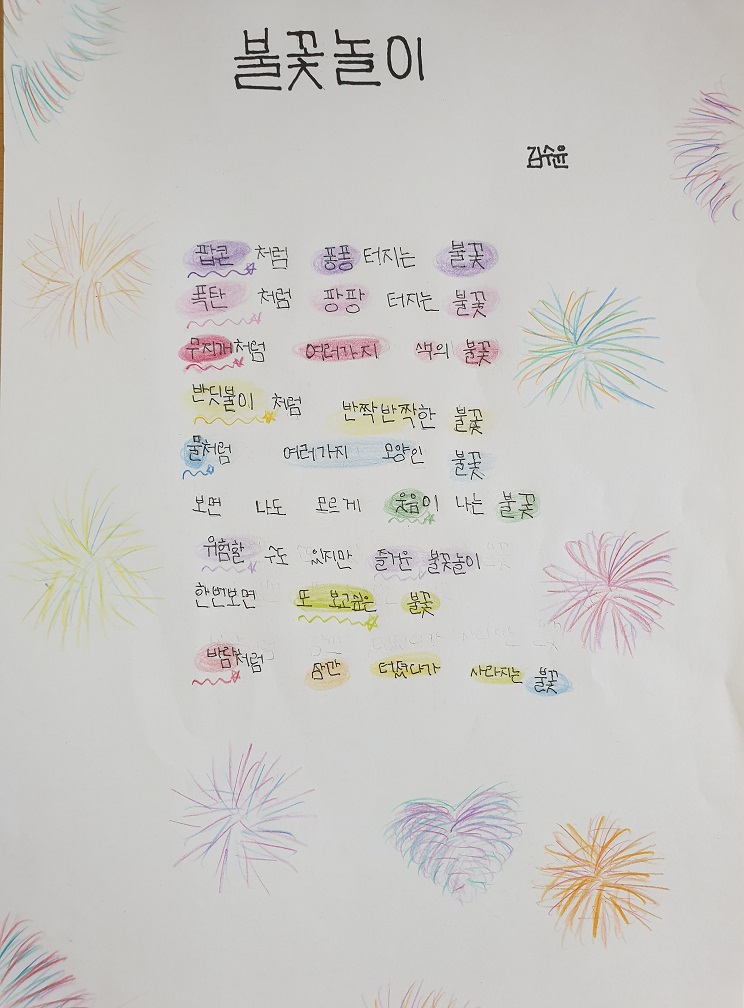 불꽃놀이
김수윤
팝콘처럼 퐁퐁 터지는 불꽃
폭탄처럼 팡팡 터지는 불꽃
무지개처럼 여러가지 색의 불꽃
반딧불이처럼 반짝반짝한 불꽃
물처럼 여러가지 모양인 불꽃
보면 나도 모르게 웃음이 나는 불꽃
위험할 수도 있지만 즐거운 불꽃놀이
한번보면 또 보고싶은 불꽃
바람처럼 잠깐 터졌다가 사라지는 불꽃